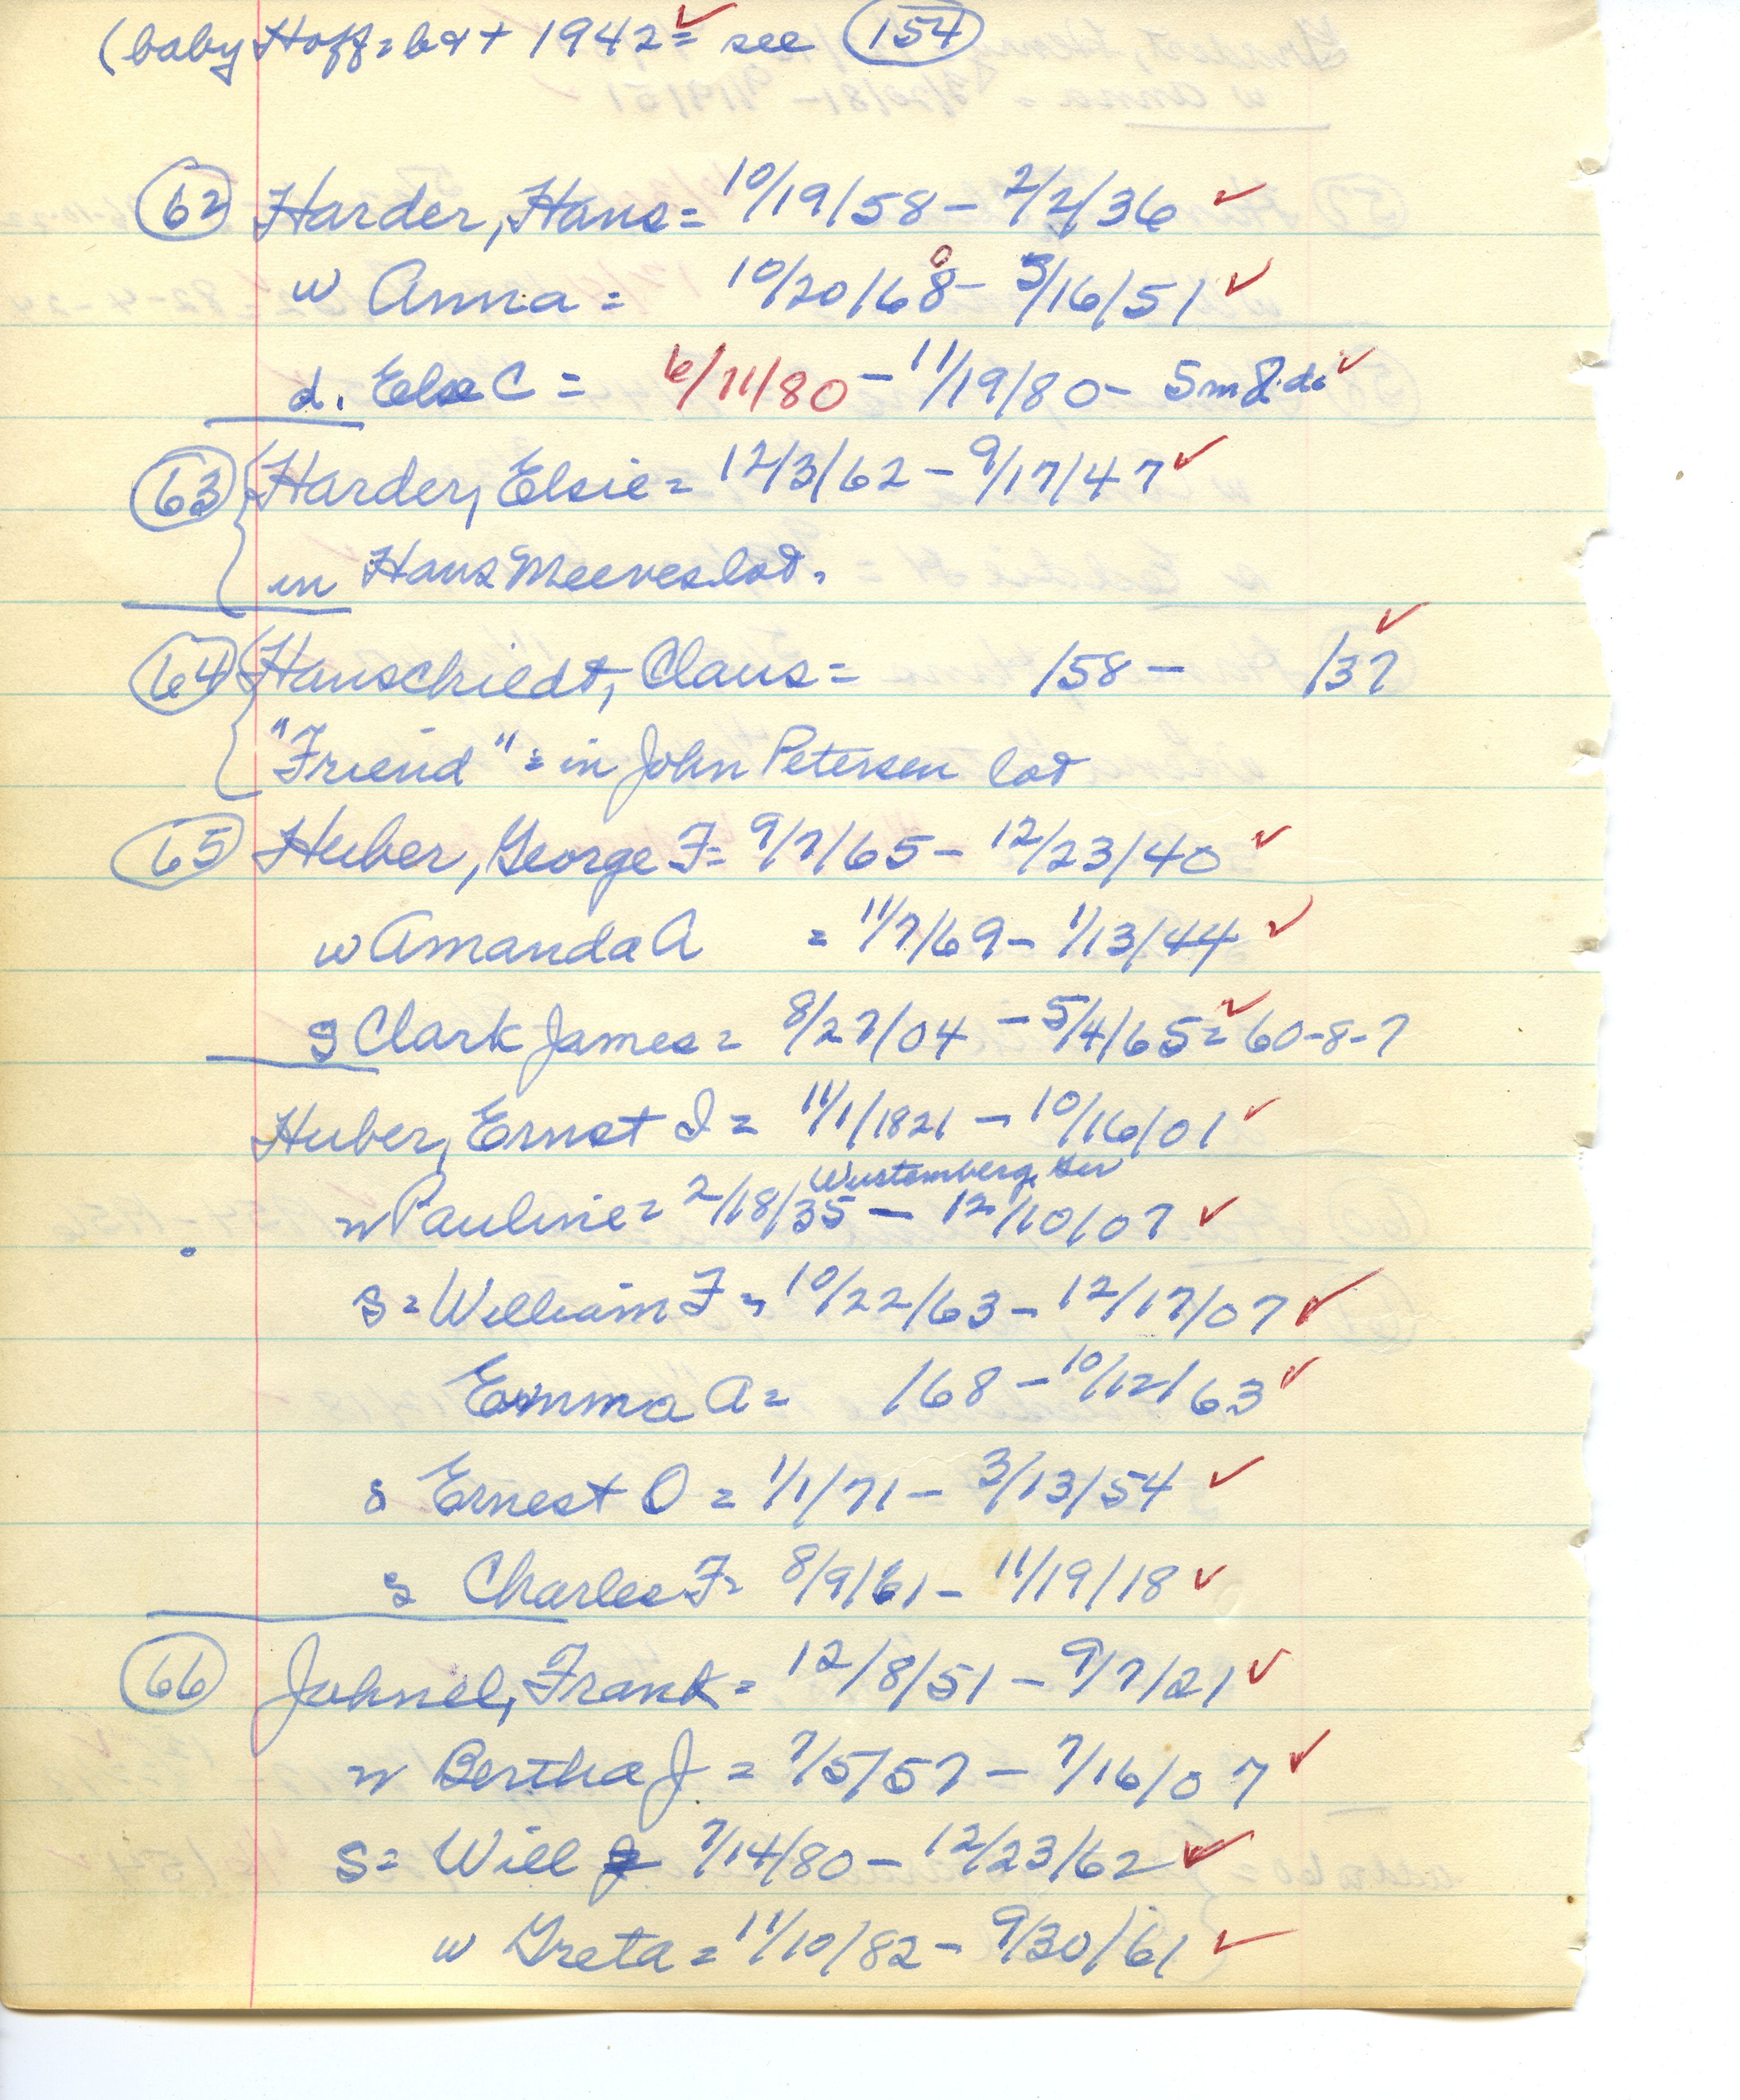 (baby Hoff = b & + 1942 = see 154
62 Harder, Hans = 10/19/58 - 2/2/36 ✓
w Anna = 10/20/68 - 5/16/51 ✓
d. Else C = 6/11/80 - 11/19/80 - 5m 8 ds ✓
63 Harder, Elsie = 12/3/62 - 9/17/47 ✓
in Hans Meeves lot.
64 Hauschildt, Claus = /58 - /37 ✓
"Friend" = in John Petersen lot
65 Huber, George F = 9/7/65 - 12/23/40 ✓
w Amanda A = 11/7/69 - 1/13/44 ✓
s Clark James = 8/27/04 - 5/4/65 = 60-8-7 ✓
Huber, Ernst I = 11/1/1821 - 10/16/01 ✓
Wurtemberg, Ger
w Pauline = 2/18/35 - 12/10/07 ✓
s = William F = 10/22/63 - 12/17/07 ✓
Emma A = /68 - 10/12/63 ✓
s Ernest O = 1/1/71 - 3/13/54 ✓
s Charles F = 8/9/61 - 11/19/18 ✓
66 Johnel, Frank = 12/8/51 - 9/7/21 ✓
w Bertha J = 7/5/57 - 7/16/07 ✓
s = Will 7/14/80 - 12/23/62 ✓
w Greta = 11/10/82 - 9/30/61 ✓